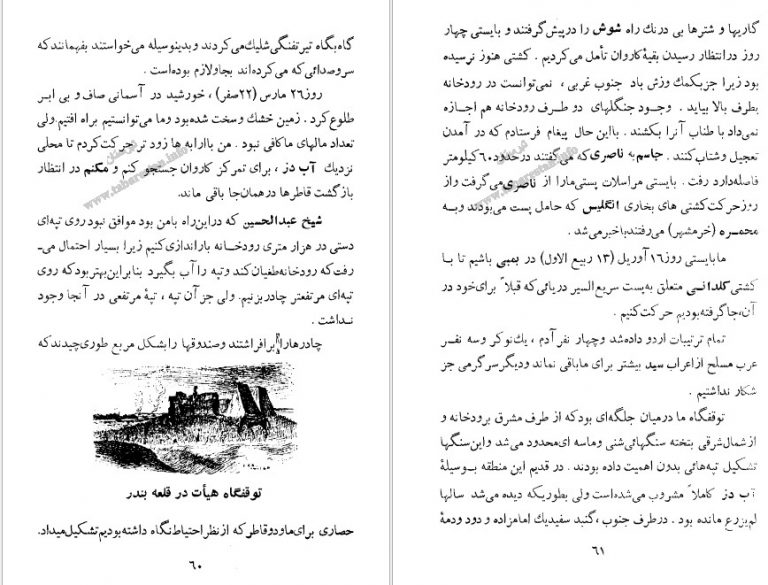 گاه‌بگاه تیرتفنگی شلیك می‌کردند و بدینوسیله می‌خواستند بفهمانند که
سروصدائی که می‌کرده‌اند بجا و لازم بوده است .
روز ۲۶ مارس (۲۲صفر) ، خورشید در آسمانی صاف و بی ابر
طلوع کرد . زمین خشك و سخت شده بود و ما می‌توانستیم براه افتیم ولی
تعداد مالهای ما کافی نبود . من با ارابه ها زود تر حرکت کردم تا محلی
نزدیك آب دز ، برای تمرکز کاروان جستجو کنم و مکنم در انتظار
بازگشت قاطرها در همان‌جا باقی ماند.
شیخ عبدالحسین که در این راه با من بود موافق نبود روی تپه‌ای
دستی در هزار متری رودخانه باراندازی کنیم زیرا بسیار احتمال می‌ـ
رفت که رودخانه طغیان کند و تپه را آب بگیرد بنابراین بهتر بود که روی
تپه‌ای مرتفعتر چادر بزنیم. ولی جز آن تپه ، تپهٔ مرتفعی در آنجا وجود
نداشت .
چادرها را برافراشتند و صندوقها را بشکل مربع طوری چیدند که
توقفگاه هیأت در قلعه بندر
حصاری برای ما و دو قاطر که از نظر احتیاط نگاه داشته بودیم تشکیل میداد.
۶۰
گاریها و شترها بی درنك راه شوش را در پیش گرفتند و بایستی چهار
روز در انتظار رسیدن بقیهٔ کاروان تأمل می‌کردیم . کشتی هنوز نرسیده
بود زیرا جز بکمك وزش باد جنوب غربی ، نمی‌توانست در رودخانه
بطرف بالا بیاید . وجود جنگلهای دو طرف رودخانه هم اجازه
نمی‌داد با طناب آنرا بکشند . با این حال پیغام فرستادم که در آمدن
تعجیل و شتاب کنند . جاسم به ناصری که می‌گفتند در حدود ۶۰ کیلومتر
فاصله دارد رفت . بایستی مراسلات پستی ما را از ناصری می‌گرفت و از
روز حرکت کشتی های بخاری انگلیس که حامل پست می‌بودند و به
محمره (خرمشهر) می‌رفتند باخبر می‌شد .
ما بایستی روز ۱۶ آوریل (۱۳ ربیع الاول) در بمبی باشیم تا با
کشتی کلدانی متعلق به پست سریع السیر دریائی که قبلاً برای خود در
آن، جا گرفته بودیم حرکت کنیم .
تمام ترتیبات اردو داده شد و چهار نفر آدم ، یك نوکر و سه نفر
عرب مسلح از اعراب سید بیشتر برای ما باقی نماند و دیگر سرگرمی جز
شکار نداشتیم .
توقفگاه ما در میان جلگه‌ای بود که از طرف مشرق برودخانه و
از شمال شرقی بتخته سنگهائی شنی و ماسه ای محدود می‌شد و این سنگها
تشکیل تپه‌هائی بدون اهمیت داده بودند . در قدیم این منطقه بوسیلهٔ
آب دز کاملاً مشروب می‌شده است ولی بطوریکه دیده می‌شد سالها
لم‌یزرع مانده بود . در طرف جنوب ، گنبد سفید یك امامزاده و دود ودمهٔ
۶۱